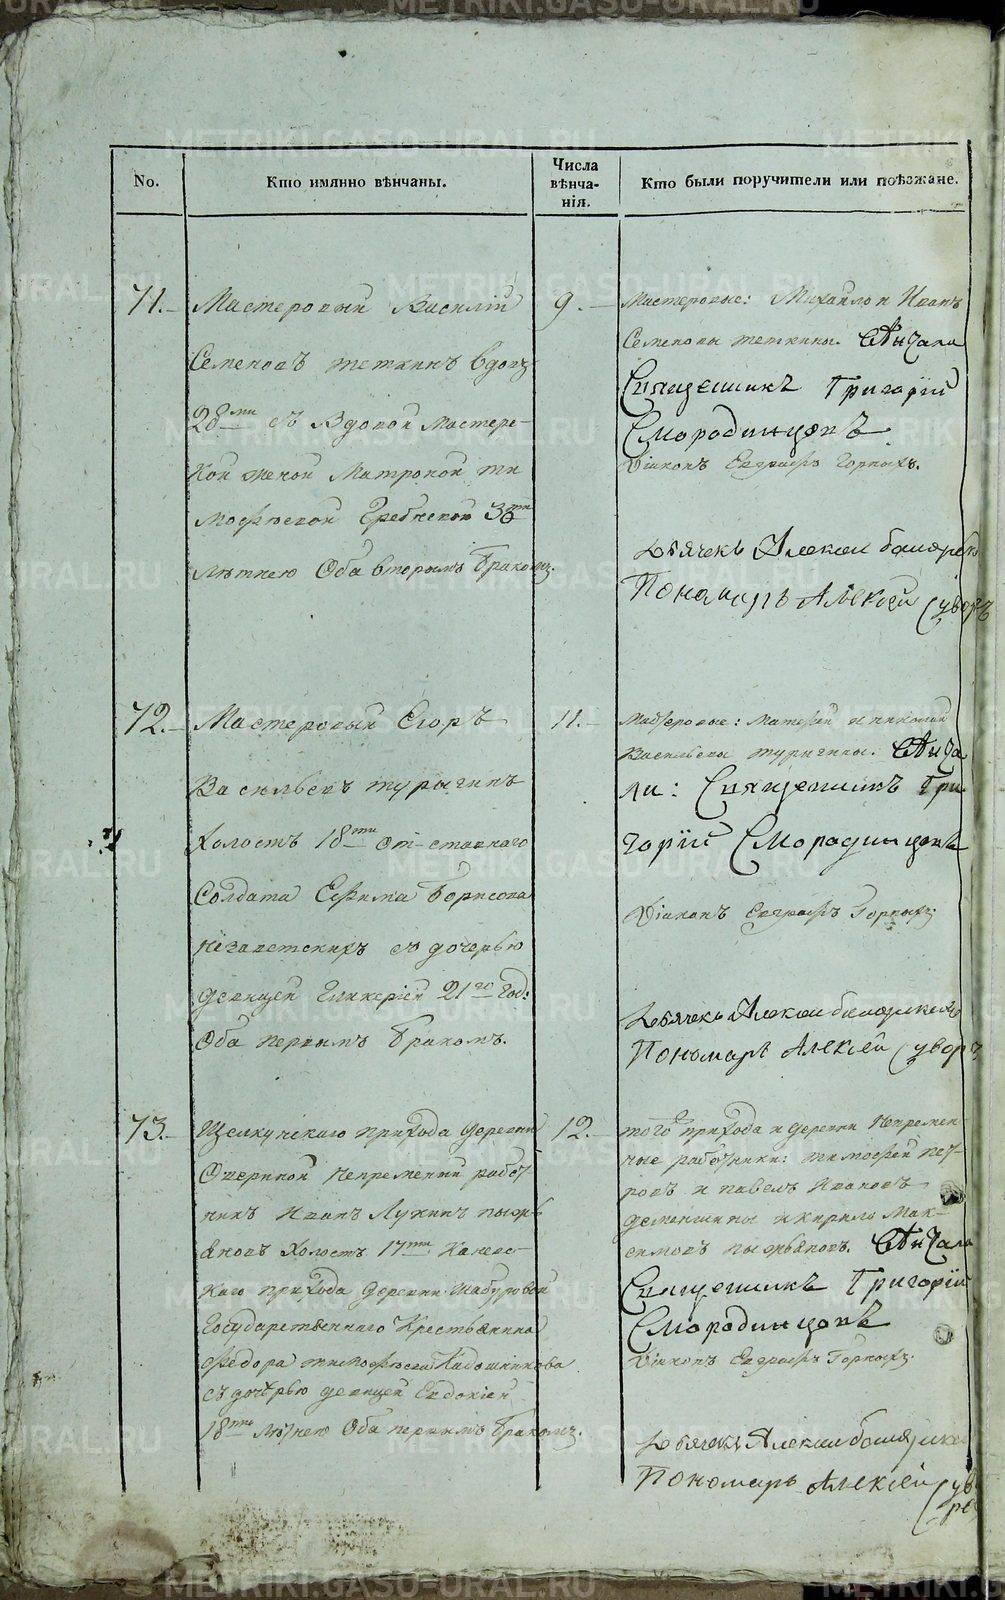 METRIKI.GASO-URAL.RU
No.
Кто имянно вѣнчаны.
Числа
вѣнча-
нія.
Кто были поручители или поѣзжане.
71.
Мастеровый Василій
Семеновъ теткинъ вдовъ
28ми съ вдовой мастерс-
кой женой Матроной ти
мофѣевой Гребневой 30ти
лѣтнею Оба вторымъ бракомъ.
9.
Мастеровые: Михайло и Иванъ
Семеновы теткины. Вѣнчали
Священникъ Григорій
Смородинцовъ
Діаконъ Евграфъ Горныхъ.
Дьячекъ Алексей
Пономарь Алексѣй Суворовъ
72.
Мастеровый Егоръ
Васильевъ турыгинъ
Холостъ 18ти отставнаго
Солдата Ефима Борисова
съ дочерью
девицей Гликеріей 21го Год:
Оба первымъ бракомъ.
11.
Мастеровые: Матвей и николай
Васильевы турыгины. Вѣнча
ли: Священникъ Гри
горій Смородинцовъ
Діаконъ Евграфъ Горныхъ
Дьячекъ Алексей
Пономарь Алексѣй Суворовъ
73.
Щелкунскаго прихода деревни
непременный работ
никъ Иванъ Лукинъ пьянь
яновъ Холостъ 17ти
каго прихода деревни Шабуровой
Государственнаго Крестьянина
Федора тимофѣева
съ дочерью девицей Евдокіей
18ти лѣтнею Оба первымъ бракомъ.
12.
того прихода и деревни непремен
ные работники: тимофей пет-
ровъ и павелъ Ивановъ
дементьины и кирило Мак-
симовъ Вѣнчали
Священникъ Григорій
Смородинцовъ
Діаконъ Евграфъ Горныхъ
Дьячекъ Алексей
Пономарь Алексѣй Суво
ро